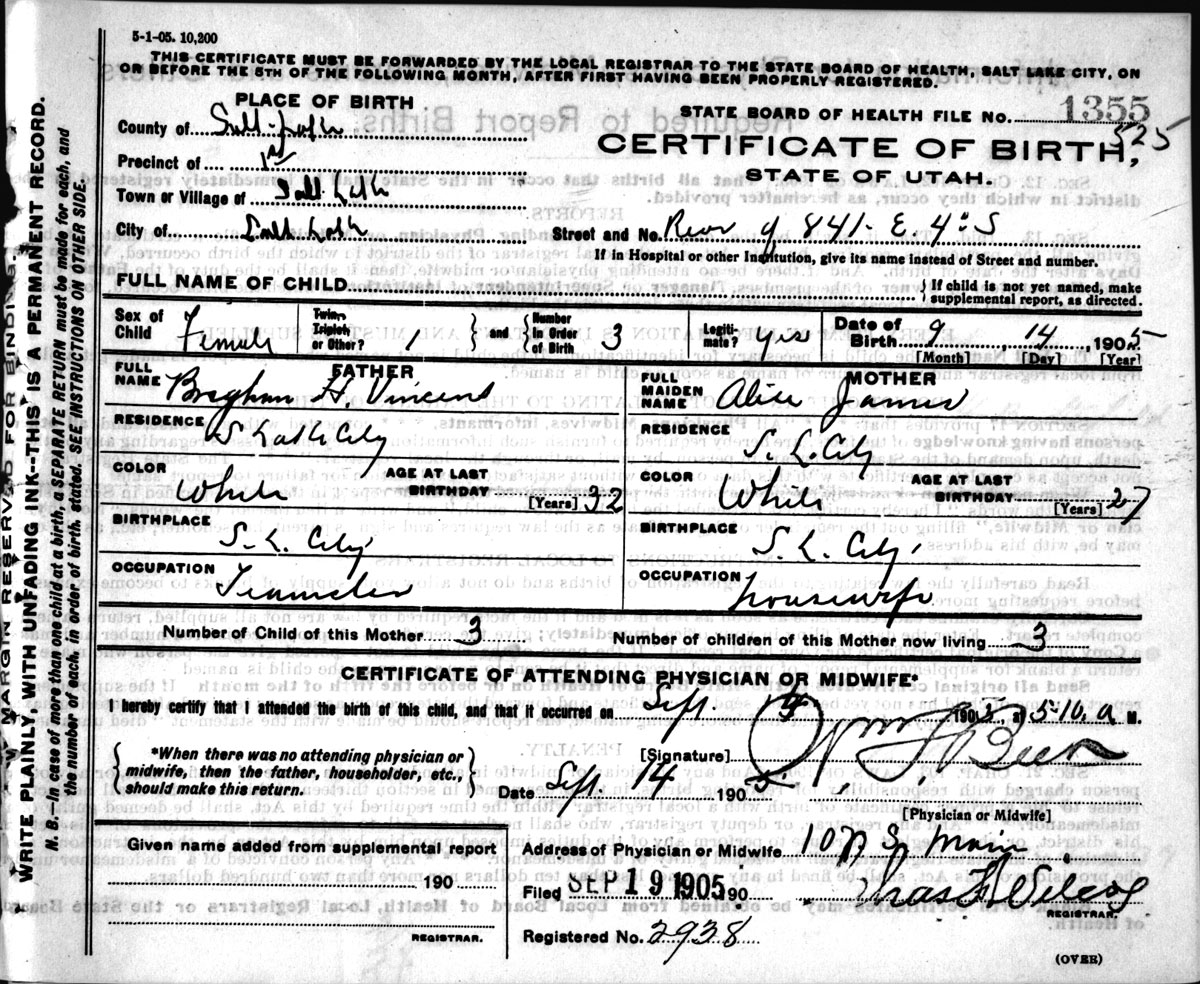 5-1-05. 10,200
THIS CERTIFICATE MUST BE FORWARDED BY THE LOCAL REGISTRAR TO THE STATE BOARD OF HEALTH, SALT LAKE CITY, ON
OR BEFORE THE 5TH OF THE FOLLOWING MONTH, AFTER FIRST HAVING BEEN PROPERLY REGISTERED.
PLACE OF BIRTH
STATE BOARD OF HEALTH FILE NO. 1355
525
County of Salt Lake
CERTIFICATE OF BIRTH,
Precinct of 1st
STATE OF UTAH.
Town or Village of Salt Lake
City of Salt Lake
Street and No. Rear of 841- E. 4" S
If in Hospital or other Institution, give its name instead of Street and number.
FULL NAME OF CHILD
If child is not yet named, make
supplemental report, as directed.
Sex of Child Female
Twin, Triplet, or Other? 1
and Number in Order of Birth 3
Legiti-mate? yes
Date of Birth 9 14, 1905
[Month] [Day] [Year]
FATHER
FULL NAME H. Vincent
RESIDENCE S Lake City
COLOR White
AGE AT LAST BIRTHDAY 32
[Years]
BIRTHPLACE S. L. City
OCCUPATION Teamster
MOTHER
FULL MAIDEN NAME Alice James
RESIDENCE S. L. City
COLOR White
AGE AT LAST BIRTHDAY 27
[Years]
BIRTHPLACE S. L. City
OCCUPATION housewife
Number of Child of this Mother 3
Number of children of this Mother now living 3
CERTIFICATE OF ATTENDING PHYSICIAN OR MIDWIFE*
I hereby certify that I attended the birth of this child, and that it occurred on Sept. 14 1905, at 5-10, a M.
*When there was no attending physician or
midwife, then the father, householder, etc.,
should make this return.
[Signature]
Date Sept. 14 1905
[Physician or Midwife]
Given name added from supplemental report
190
REGISTRAR.
Address of Physician or Midwife Main
Filed SEP 19 1905 190
REGISTRAR.
Registered No. 2938
(OVER)
MARGIN RESERVED FOR BINDING
WRITE PLAINLY WITH UNFADING INK---THIS IS A PERMANENT RECORD.
N. B.--In case of more than one child at a birth, a SEPARATE RETURN must be made for each, and
the number of each, in order of birth, stated. SEE INSTRUCTIONS ON OTHER SIDE.